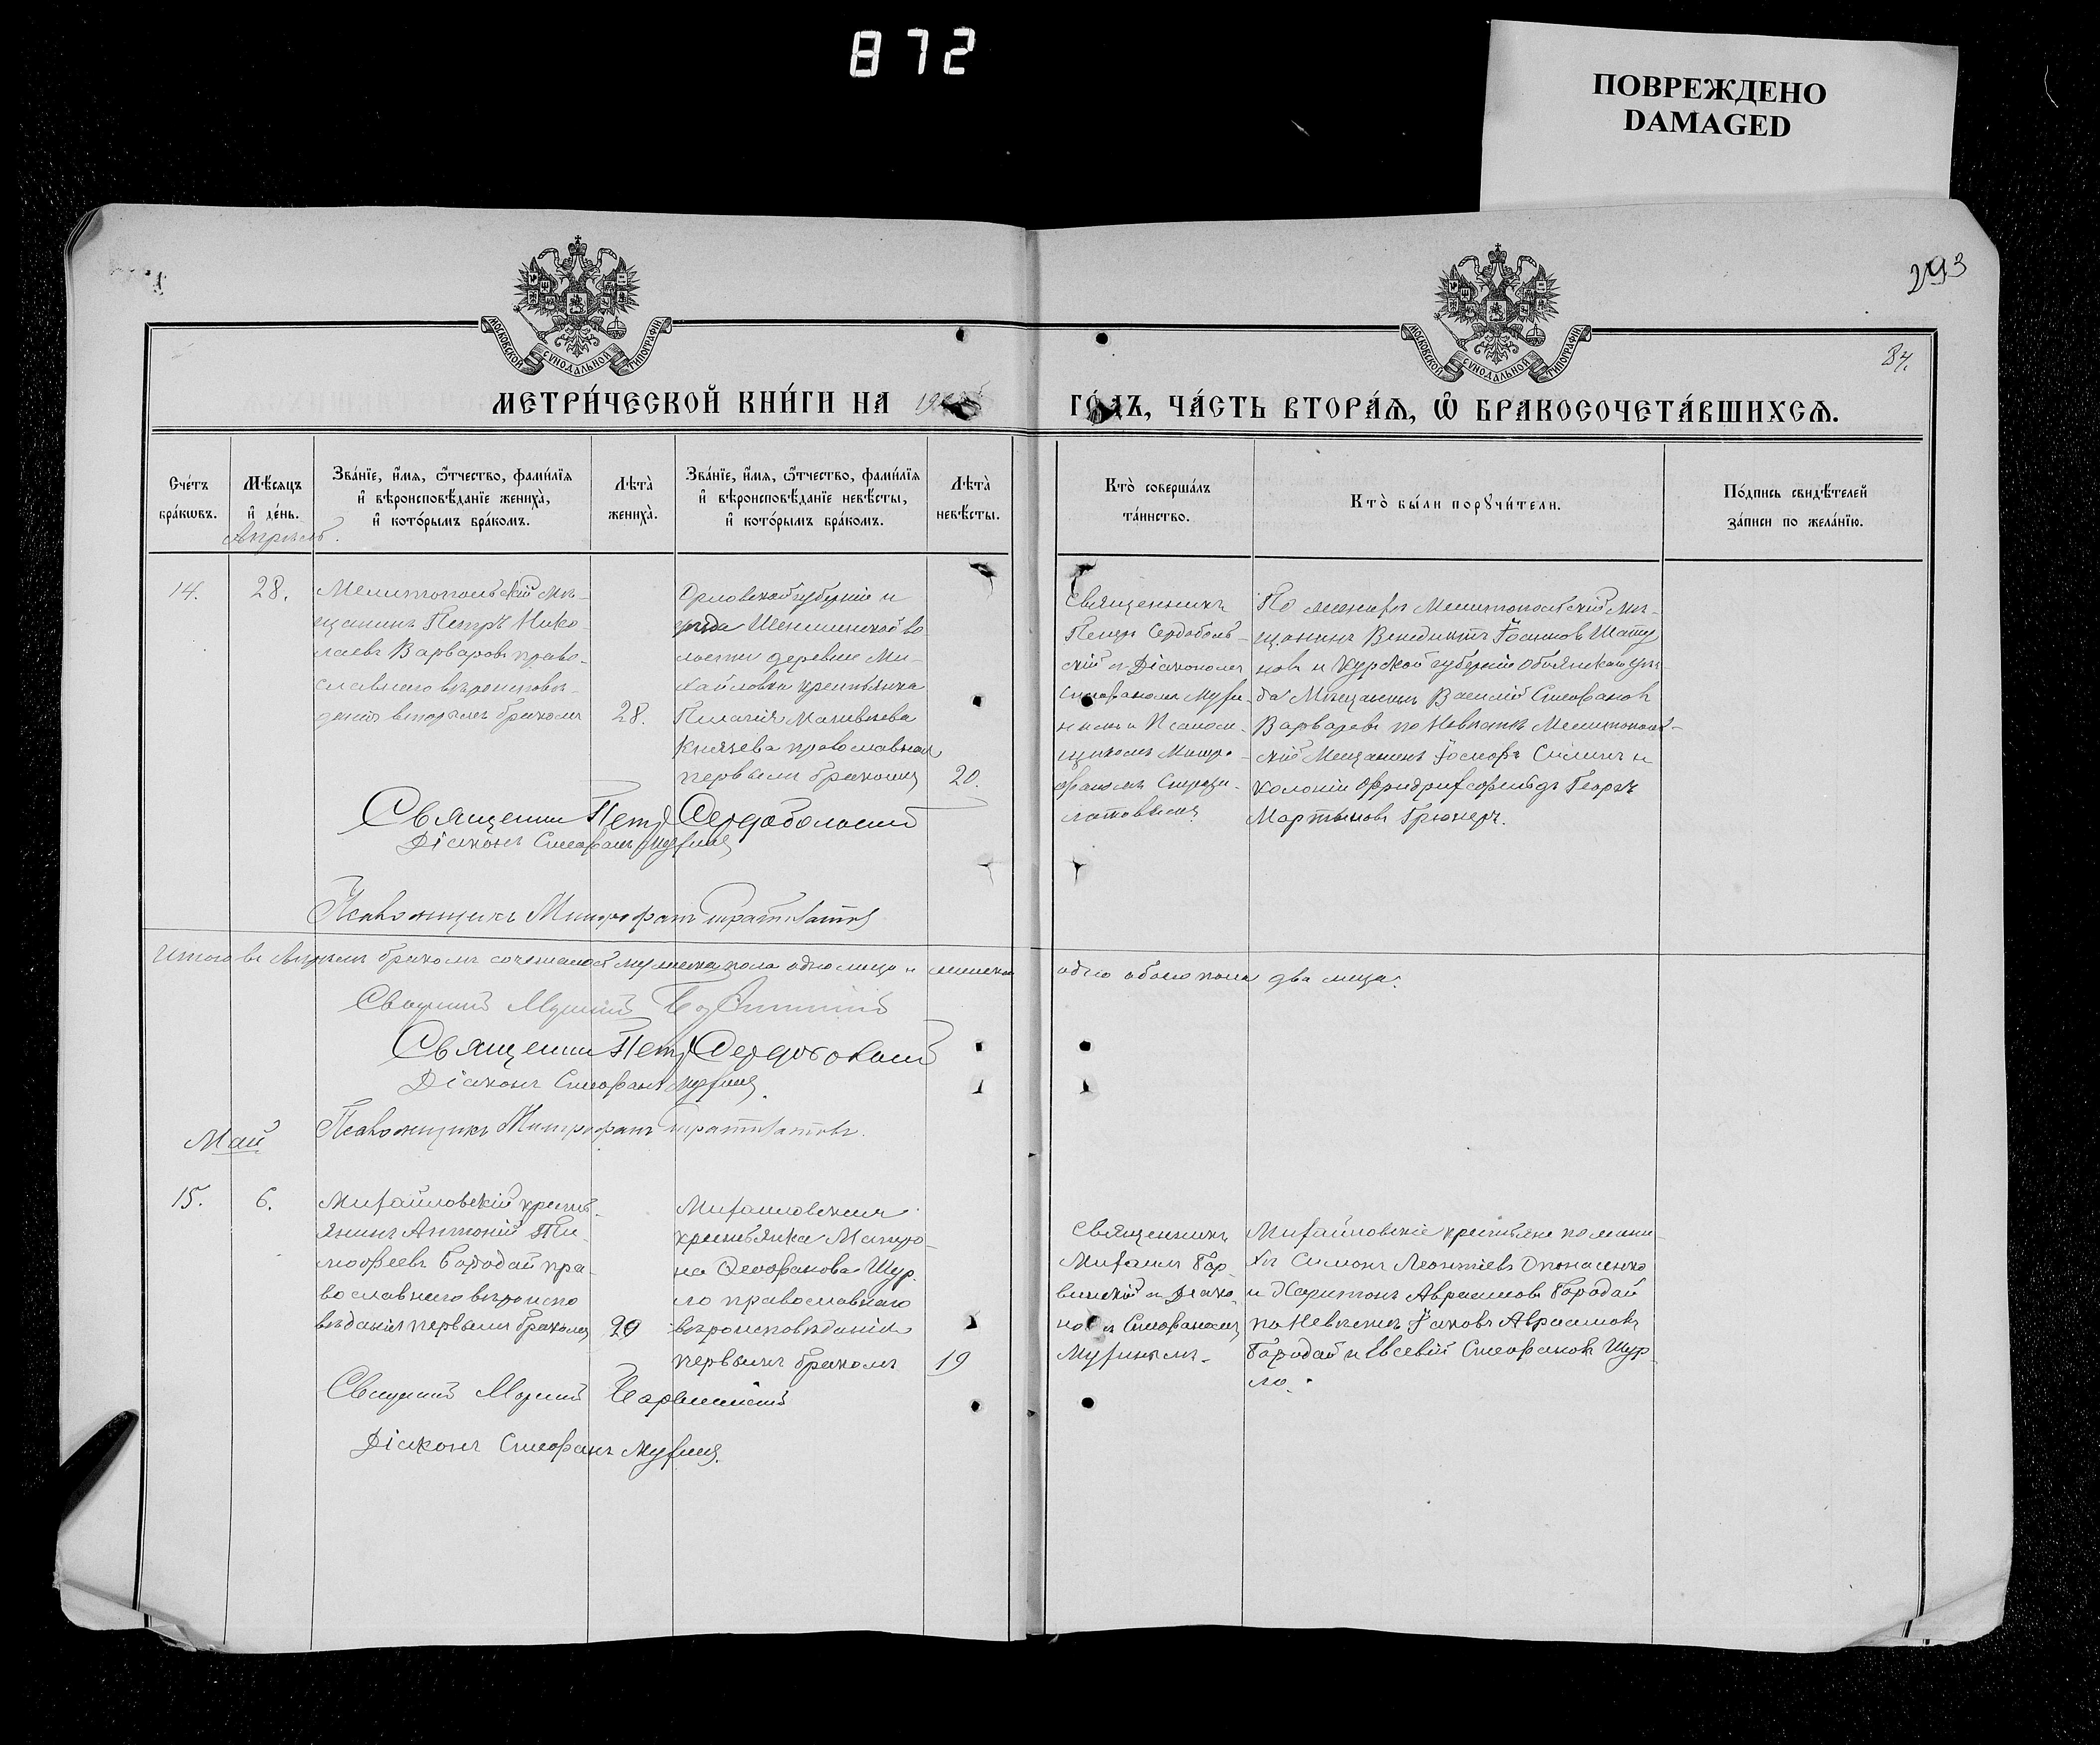 872
ПОВРЕЖДЕНО
DAMAGED
293
84.
МОСКОВСКОЙ СѴНОДАЛЬНОЙ ТИПОГРАФІИ
МОСКОВСКОЙ СѴНОДАЛЬНОЙ ТИПОГРАФІИ
МЕТРИ́ЧЕСКОЙ КНИ́ГИ НА 19
ГО́ДЪ, ЧА́СТЬ ВТОРА́Ѧ, Ѽ БРАКОСОЧЕТА́ВШИХСѦ.
Сче́тъ
бра́кѡвъ.
Мѣ́сѧцъ
и҆ де́нь.
Зва́нїе, и҆́мѧ, ѻ҆́тчество, фами́лїѧ
и҆ вѣроисповѣ́данїе жениха̀,
и҆ кото́рымъ бра́комъ.
Лѣта̀
жениха̀.
Зва́нїе, и҆́мѧ, ѻ҆́тчество, фами́лїѧ
и҆ вѣроисповѣ́данїе невѣ́сты,
и҆ кото́рымъ бра́комъ.
Лѣта̀
невѣ́сты.
Кто̀ соверша́лъ
та́инство.
Кто̀ бы́ли порꙋчи́тели.
По́дпись свидѣ́телей
за́писи по жела́нїю.
Апрѣль.
14.
28.
Мелитопольскій мѣ-
щанинъ Петръ Нико-
лаевъ Варваровъ право-
славнаго вѣроисповѣ-
данія вторымъ бракомъ
28.
Орловской губерніи и
уѣзда во
лости деревни Ми-
хайловки крестьянка
Пелагія Матвѣева
Князева православная
первымъ бракомъ
20.
Священникъ
Петръ Сердоболь-
скій и Діакономъ
Стефаномъ Мухи-
нымъ и Псалом-
щикомъ Митро-
фаномъ
По женихѣ Мелитопольскій мѣ-
щанинъ Венедиктъ Іоанновъ
новъ и Курской губерніи Обоянскаго уѣз-
да Мѣщанинъ Василій Стефановъ
Варваровъ по Невѣстѣ Мелитополь-
скій Мещанинъ Іосифъ Силинъ и
колоніи Фридрихсфельдъ Георгъ
Мартыновъ Грюнеръ.
Священникъ Петръ Сердобольскій
Діаконъ Стефанъ Мухинъ
Псаломщикъ Митрофанъ
Итого въ Апрѣлѣ бракомъ сочеталось мужеска пола одно лицо и женска
одно обоего пола два лица.
Священникъ Михаилъ
Священникъ Петръ Сердобольскій
Діаконъ Стефанъ Мухинъ.
Псаломщикъ Митрофанъ
Май
15.
6.
Михайловскій кресть-
янинъ Антоній Ти-
мофеевъ Бородай пра-
вославнаго вѣроиспо
вѣданія первымъ бракомъ
20
Михайловская
крестьянка Матро-
на Стефанова Щур-
ло православнаго
вѣроисповѣданія
первымъ бракомъ
19
Священникъ
Михаилъ
и Діако-
номъ Стефаномъ
Мухинымъ.
Михайловскіе крестьяне по жени-
хѣ Симонъ Леонтіевъ Опонасенко
и Харитонъ Авраамовъ Бородай
по Невѣстѣ Іаковъ Авраамовъ
Бородай и Евсевій Стефановъ Щур-
ло.
Священникъ Михаилъ
Діаконъ Стефанъ Мухинъ.